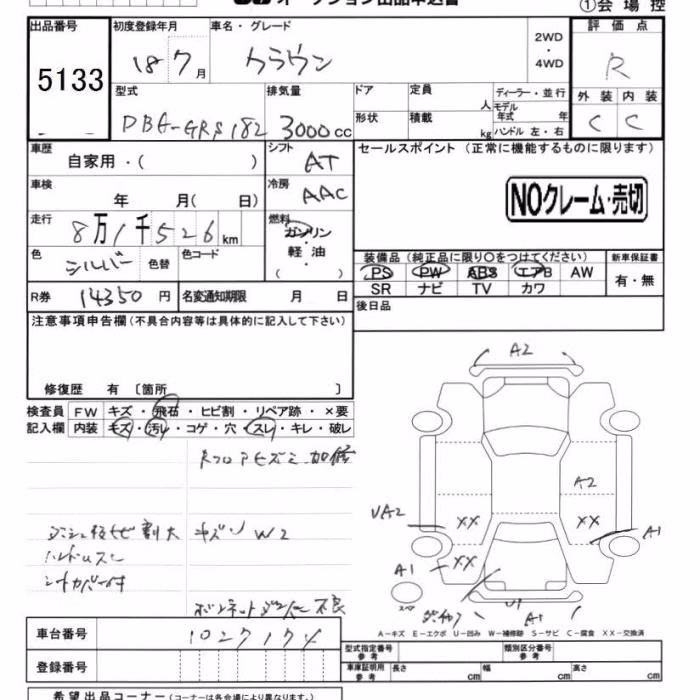 オークション出品申込書
①会場控
出品番号 初度登録年月 車名・グレード 評価点
5133 18 7月 クラウン 2WD・4WD R
型式 排気量 ドア 定員 人 ディーラー・並行 外装 内装
モデル年式 年
DBA-GRS182 3000cc 形状 積載 kg ハンドル 左・右 C C
車歴 シフト セールスポイント (正常に機能するものに限ります)
自家用・( ) AT
車検 冷房 NOクレーム・売切
年 月( 日) AAC
走行 燃料
8万1千526km ガソリン・軽油 ( )
色 シルバー 色替 色コード
装備品 (純正品に限り〇をつけてください) 新車保証書
PS PW ABS エアB AW 有・無
SR ナビ TV カワ
R券 14350円 名変通知期限 月 日 後日品
注意事項申告欄 (不具合内容等は具体的に記入して下さい)
修復歴 有 〔箇所 〕
検査員 FW キズ・飛石・ヒビ割・リペア跡・×要
記入欄 内装 キズ・汚レ・コゲ・穴・スレ・キレ・破レ
A2
A2
UA2 XX XX A1
XX
A1
A1
キズ W2
車台番号
A-キズ E-エクボ U-凹み W-補修跡 S-サビ C-腐食 XX-交換済
登録番号
型式指定番号 参考 類別区分番号 参考
車庫証明用 参考 長さ cm 幅 cm 高さ cm
希望出品コーナー (コーナーは各会場により異なります。)